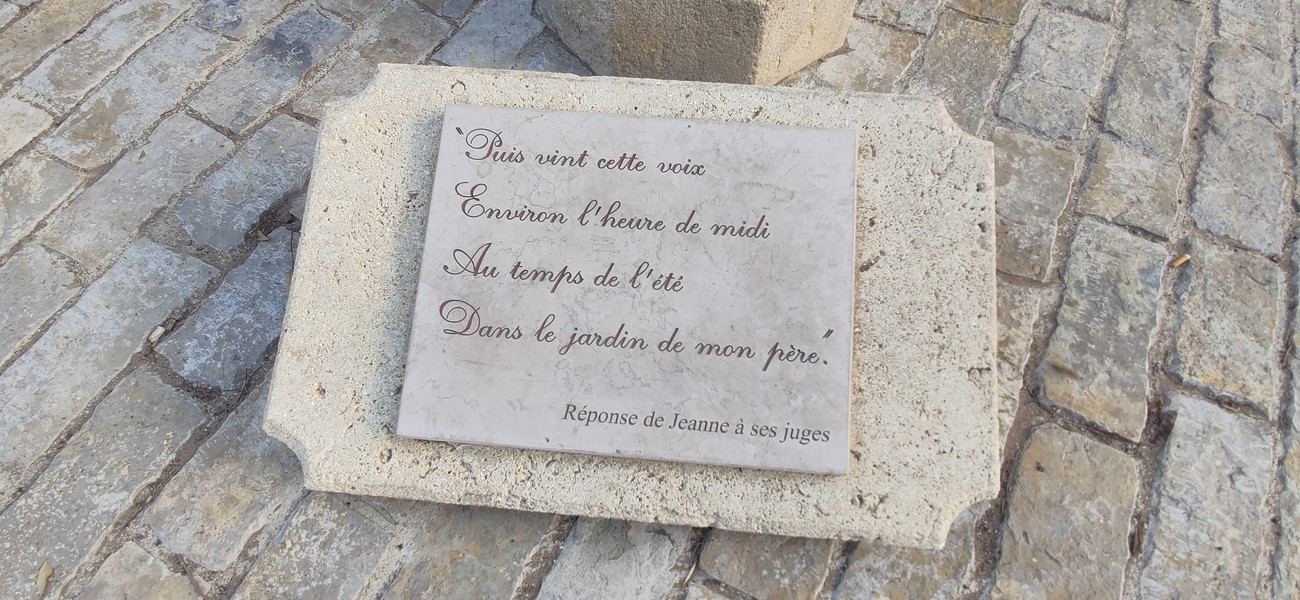 "Puis vint cette voix
Environ l'heure de midi
Au temps de l'été
Dans le jardin de mon père."
Réponse de Jeanne à ses juges